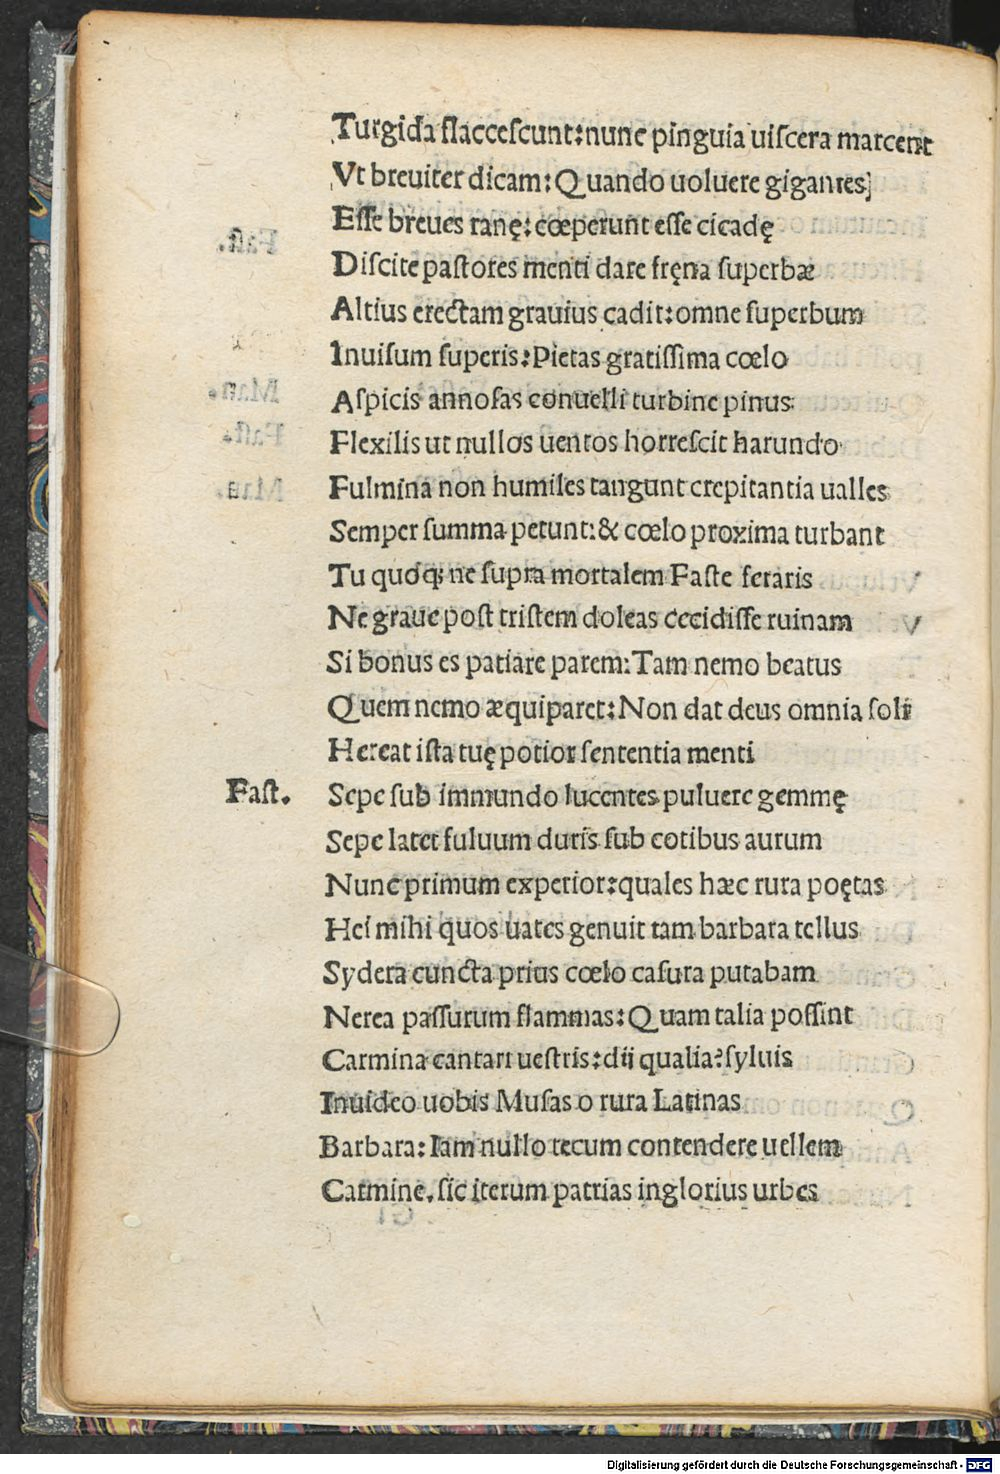 Turgida flaccescunt:nunc pinguia uiſcera marcent
Vt breuiter dicam:Quando uoluere gigantes
Eſſe breues ranę:cœperunt eſſe cicadę
Diſcite paſtores menti dare fręna ſuperbæ
Altius erectam grauius cadit:omne ſuperbum
Inuiſum ſuperis:Pietas gratiſſima cœlo
Aſpicis annoſas conuelli turbine pinus
Flexilis ut nullos uentos horreſcit harundo
Fulmina non humiles tangunt crepitantia ualles
Semper ſumma petunt:& cœlo proxima turbant
Tu quoq; ne ſupra mortalem Faſte feraris
Ne graue poſt triſtem doleas cecidiſſe ruinam
Si bonus es patiare parem:Tam nemo beatus
Quem nemo æquiparet:Non dat deus omnia ſoli
Hereat iſta tuę potior ſententia menti
Faſt. Sepe ſub immundo lucentes puluere gemmę
Sepe latet fuluum duris ſub cotibus aurum
Nunc primum experior:quales hæc rura poętas
Hei mihi quos uates genuit tam barbara tellus
Sydera cuncta prius cœlo caſura putabam
Nerea paſſurum flammas:Quam talia poſſint
Carmina cantari ueſtris:dii qualia?ſyluis
Inuideo uobis Muſas o rura Latinas
Barbara:Iam nullo tecum contendere uellem
Carmine.ſic iterum patrias inglorius urbes
Digitalisierung gefördert durch die Deutsche Forschungsgemeinschaft - DFG